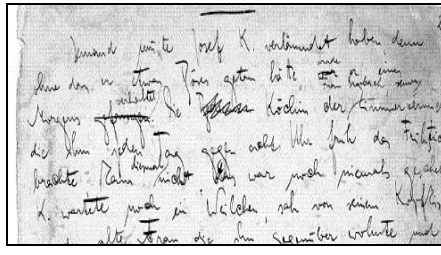 Jemand musste Josef K. verläumdet haben denn
ohne dass er etwas Böses getan hätte wurde er eines
Morgens verhaftet. Die Köchin der
die ihm jeden Tag gegen acht Uhr früh das
brachte kam diesmal nicht. Das war noch niemals
K. wartete noch ein Weilchen, sah von seinem
alte Frau die ihm gegenüber wohnte und